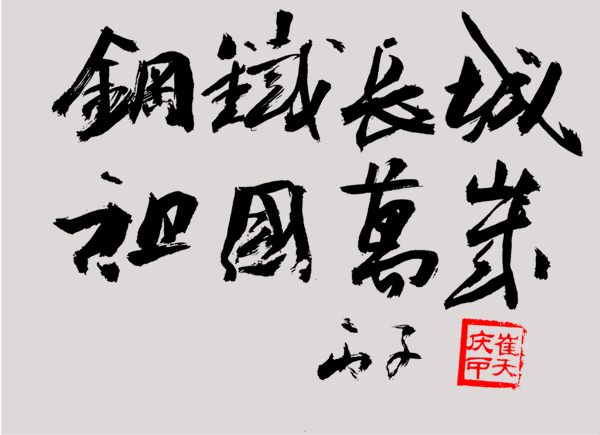 鋼鐵長城
祖國萬歲
子
崔天
庆甲